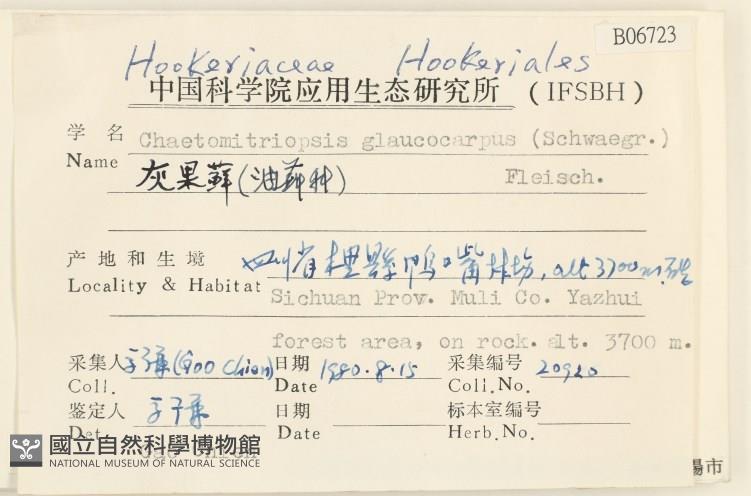 B06723
Hookeriaceae Hookeriales
中国科学院应用生态研究所 (IFSBH)
学名 Chaetomitriopsis glaucocarpus (Schwaegr.)
Name 灰果藓(油藓科) Fleisch.
产地和生境 四川省木里縣鸭咀 alt 3700m.
Locality & Habitat Sichuan Prov. Muli Co. Yazhui
forest area, on rock. alt. 3700 m.
采集人 (Gao Chien) 日期 1980.8.15 采集编号 20920
Coll. Date Coll.No.
鉴定人 日期 标本室编号
Det. Date Herb.No.
Gao Chien
國立自然科學博物館
NATIONAL MUSEUM OF NATURAL SCIENCE
陽市